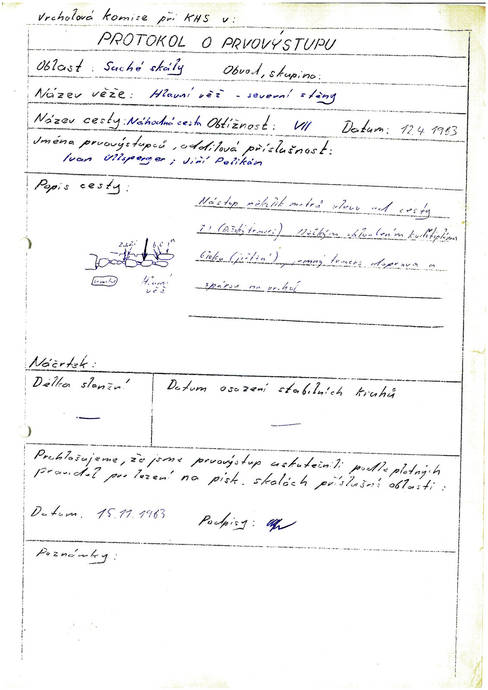 Vrcholová komise při KHS v:
PROTOKOL O PRVOVÝSTUPU
Oblast: Suché skály Obvod, skupina:
Název věže: Hlavní věž - severní stěny
Název cesty: Náhodná cesta Obtížnost: VII Datum: 12.4 1983
Jména prvovýstupců, oddílová příslušnost:
Ivan ; Jiří
Popis cesty:
Nástup několik metrů vlevo od cesty
září
Hlavní
věž
doprava a
spárou na vrchol
Náčrtek:
Délka slanění Datum osazení stabilních kruhů
— —
Prohlašujeme, že jsme prvovýstup uskutečnili podle platných
pravidel pro lezení na písk. skalách příslušné oblasti:
Datum: 15.11.1983 Podpisy:
Poznámky: